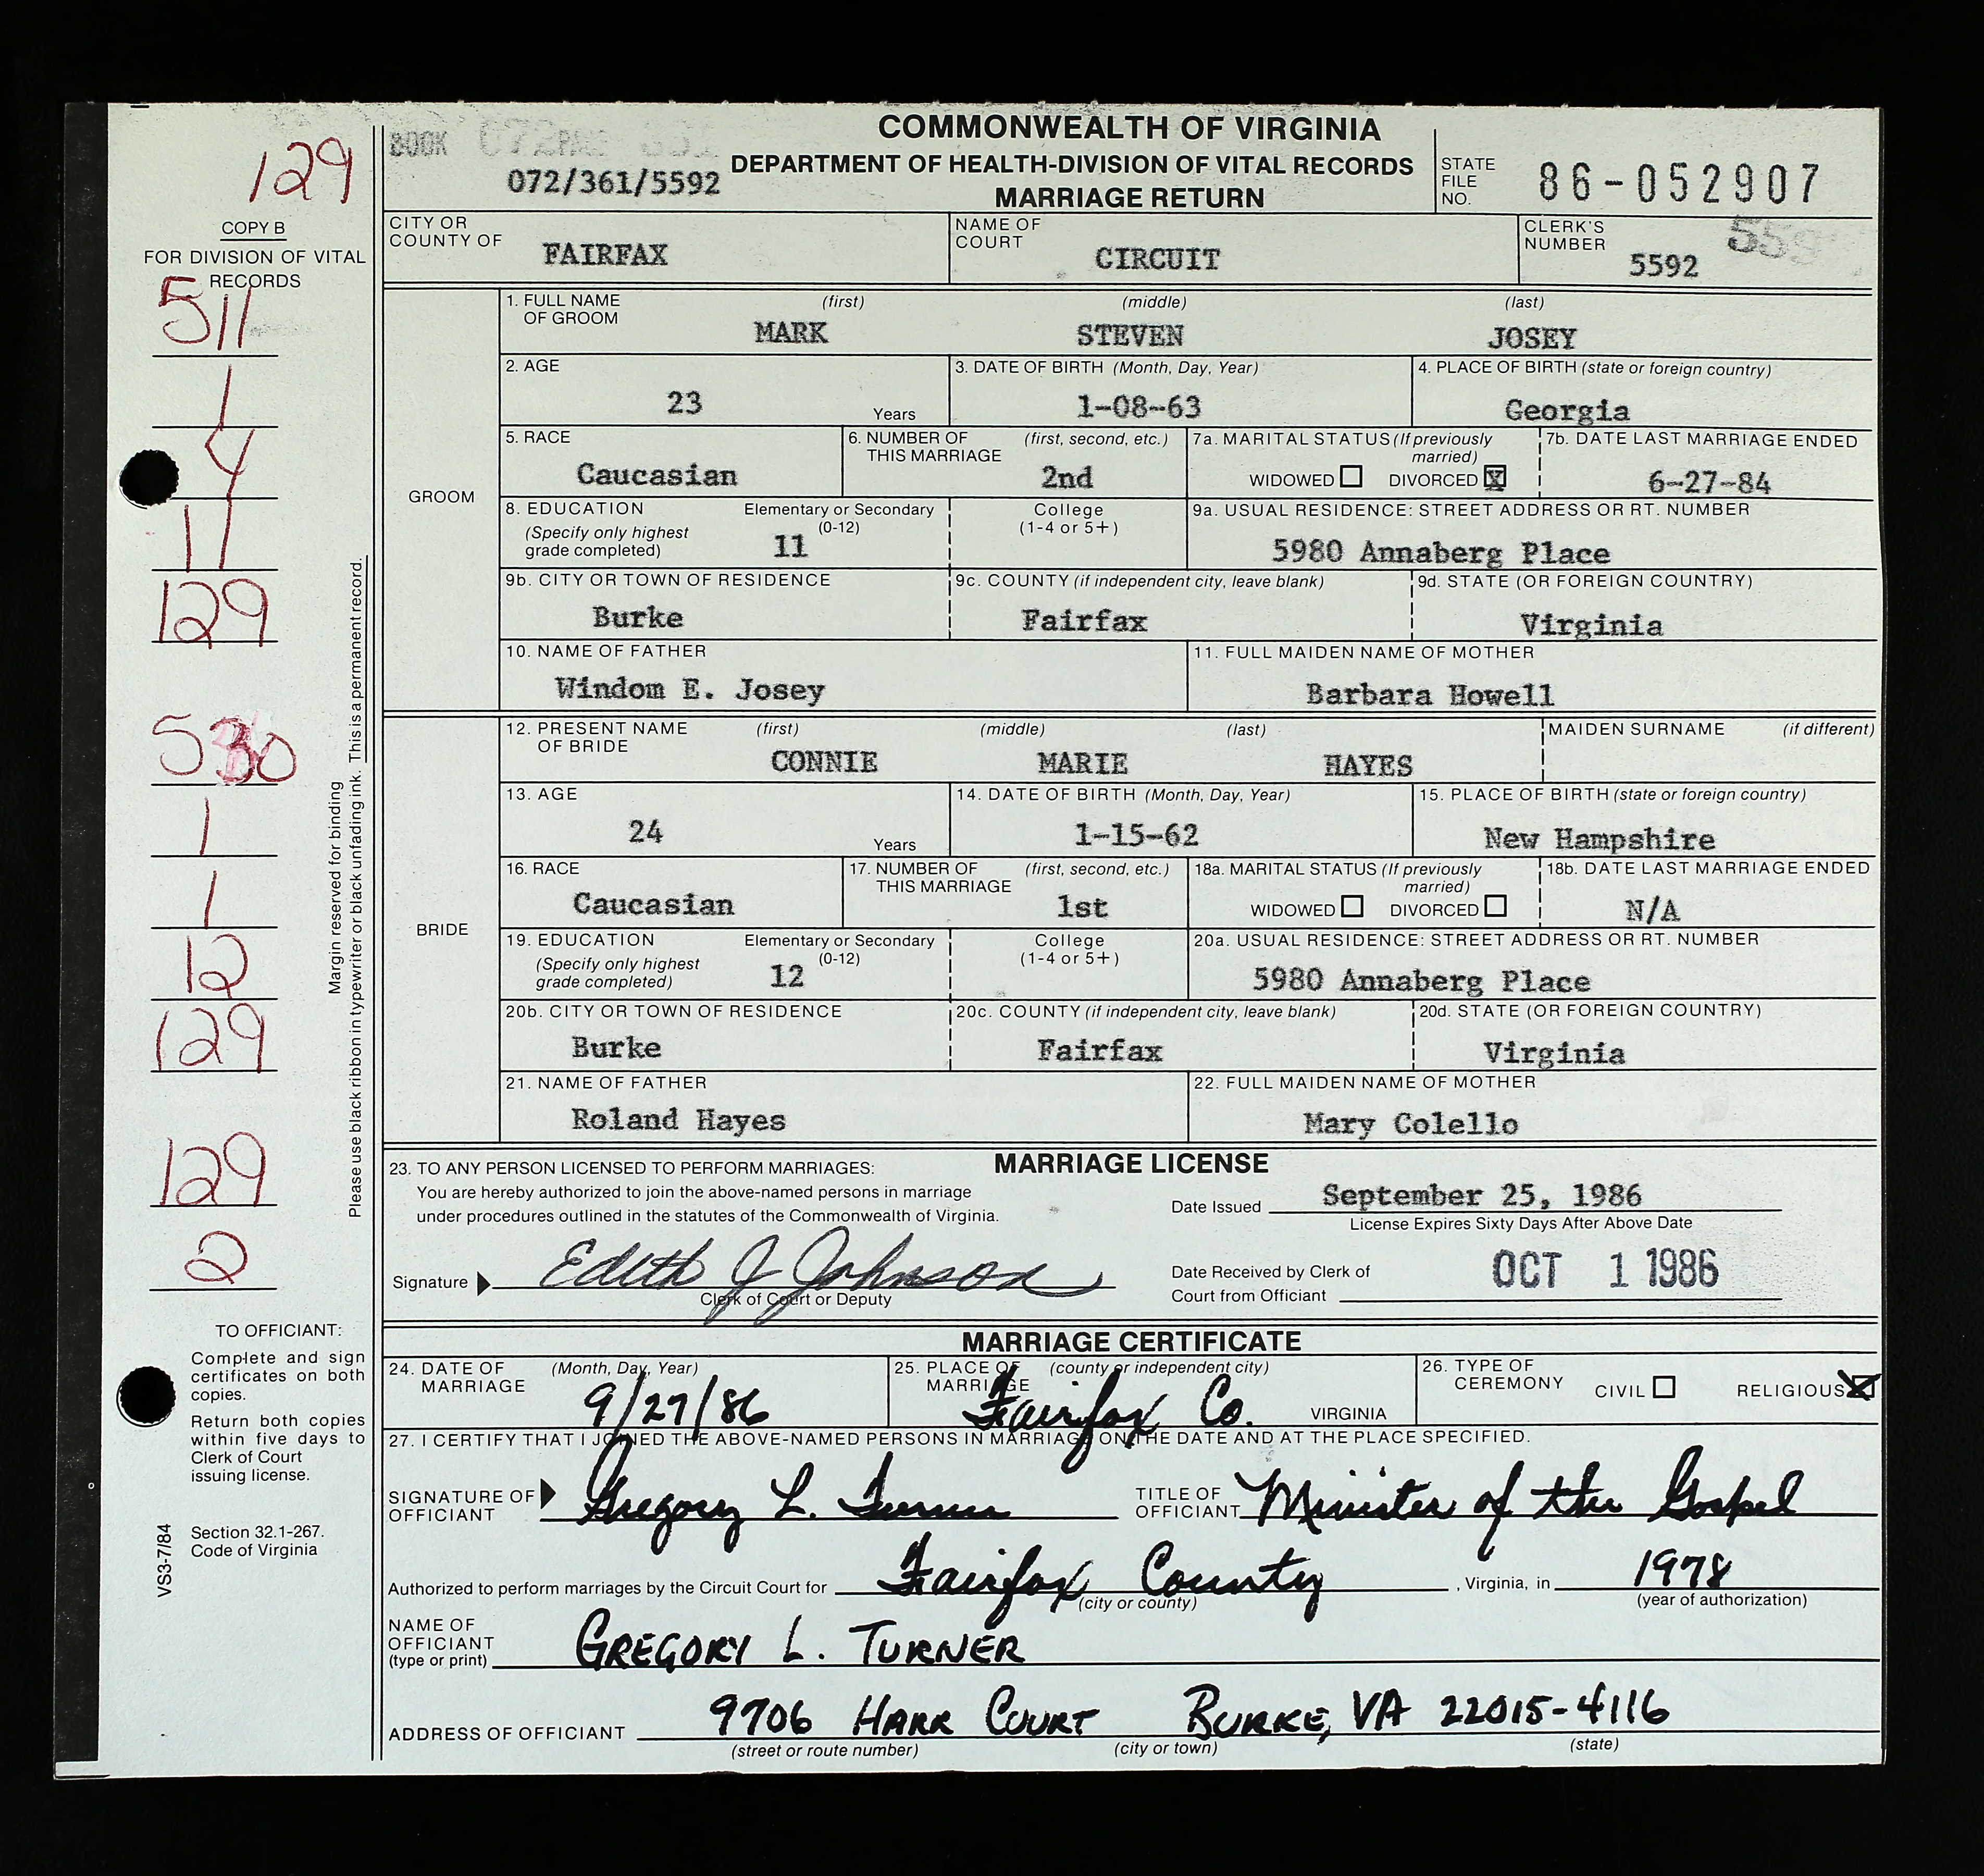 COMMONWEALTH OF VIRGINIA
DEPARTMENT OF HEALTH-DIVISION OF VITAL RECORDS
MARRIAGE RETURN
BOOK
072/361/5592
STATE FILE NO. 86-052907
129
COPY B
FOR DIVISION OF VITAL RECORDS
511
1
4
11
129
530
1
1
12
129
129
2
Margin reserved for binding
Please use black ribbon in typewriter or black unfading ink. This is a permanent record.
TO OFFICIANT:
Complete and sign
certificates on both
copies.
Return both copies
within five days to
Clerk of Court
issuing license.
Section 32.1-267.
Code of Virginia
VS3-7/84
CITY OR COUNTY OF FAIRFAX
NAME OF COURT CIRCUIT
CLERK'S NUMBER 5592
GROOM
1. FULL NAME OF GROOM (first) MARK (middle) STEVEN (last) JOSEY
2. AGE 23 Years
3. DATE OF BIRTH (Month, Day, Year) 1-08-63
4. PLACE OF BIRTH (state or foreign country) Georgia
5. RACE Caucasian
6. NUMBER OF THIS MARRIAGE (first, second, etc.) 2nd
7a. MARITAL STATUS (If previously married) WIDOWED DIVORCED X
7b. DATE LAST MARRIAGE ENDED 6-27-84
8. EDUCATION (Specify only highest grade completed) Elementary or Secondary (0-12) 11 College (1-4 or 5+)
9a. USUAL RESIDENCE: STREET ADDRESS OR RT. NUMBER 5980 Annaberg Place
9b. CITY OR TOWN OF RESIDENCE Burke
9c. COUNTY (if independent city, leave blank) Fairfax
9d. STATE (OR FOREIGN COUNTRY) Virginia
10. NAME OF FATHER Windom E. Josey
11. FULL MAIDEN NAME OF MOTHER Barbara Howell
BRIDE
12. PRESENT NAME OF BRIDE (first) CONNIE (middle) MARIE (last) HAYES MAIDEN SURNAME (if different)
13. AGE 24 Years
14. DATE OF BIRTH (Month, Day, Year) 1-15-62
15. PLACE OF BIRTH (state or foreign country) New Hampshire
16. RACE Caucasian
17. NUMBER OF THIS MARRIAGE (first, second, etc.) 1st
18a. MARITAL STATUS (If previously married) WIDOWED DIVORCED
18b. DATE LAST MARRIAGE ENDED N/A
19. EDUCATION (Specify only highest grade completed) Elementary or Secondary (0-12) 12 College (1-4 or 5+)
20a. USUAL RESIDENCE: STREET ADDRESS OR RT. NUMBER 5980 Annaberg Place
20b. CITY OR TOWN OF RESIDENCE Burke
20c. COUNTY (if independent city, leave blank) Fairfax
20d. STATE (OR FOREIGN COUNTRY) Virginia
21. NAME OF FATHER Roland Hayes
22. FULL MAIDEN NAME OF MOTHER Mary Colello
MARRIAGE LICENSE
23. TO ANY PERSON LICENSED TO PERFORM MARRIAGES:
You are hereby authorized to join the above-named persons in marriage
under procedures outlined in the statutes of the Commonwealth of Virginia.
Date Issued September 25, 1986
License Expires Sixty Days After Above Date
Signature Edith J Johnson
Clerk of Court or Deputy
Date Received by Clerk of Court from Officiant OCT 1 1986
MARRIAGE CERTIFICATE
24. DATE OF MARRIAGE (Month, Day, Year) 9/27/86
25. PLACE OF MARRIAGE (county or independent city) Fairfax Co. VIRGINIA
26. TYPE OF CEREMONY CIVIL RELIGIOUS X
27. I CERTIFY THAT I JOINED THE ABOVE-NAMED PERSONS IN MARRIAGE ON THE DATE AND AT THE PLACE SPECIFIED.
SIGNATURE OF OFFICIANT Gregory L. Turner
TITLE OF OFFICIANT Minister of the Gospel
Authorized to perform marriages by the Circuit Court for Fairfax County, Virginia, in 1978
(city or county) (year of authorization)
NAME OF OFFICIANT (type or print) GREGORY L. TURNER
ADDRESS OF OFFICIANT 9706 HARR COURT BURKE, VA 22015-4116
(street or route number) (city or town) (state)